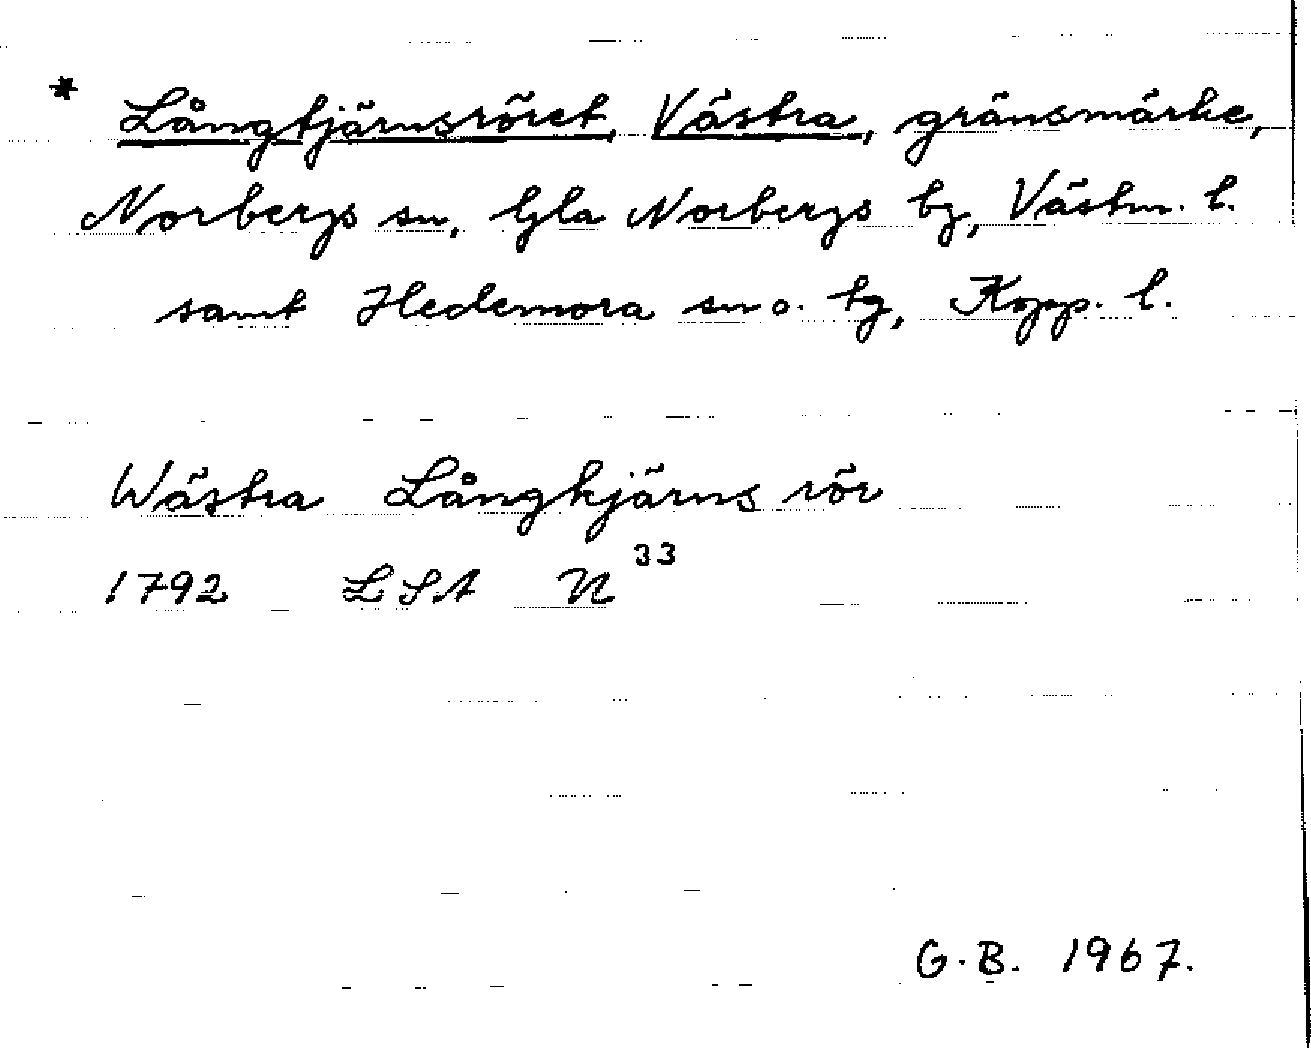 * Långtjärnsröret, Västra, gränsmärke,
Norbergs sn, Gla Norbergs bg, Västm. l.
samt Hedemora sn o. tg, Kopp. l.
Wästra Långtjärns rör
1792 LSA U 33
G.B. 1967.